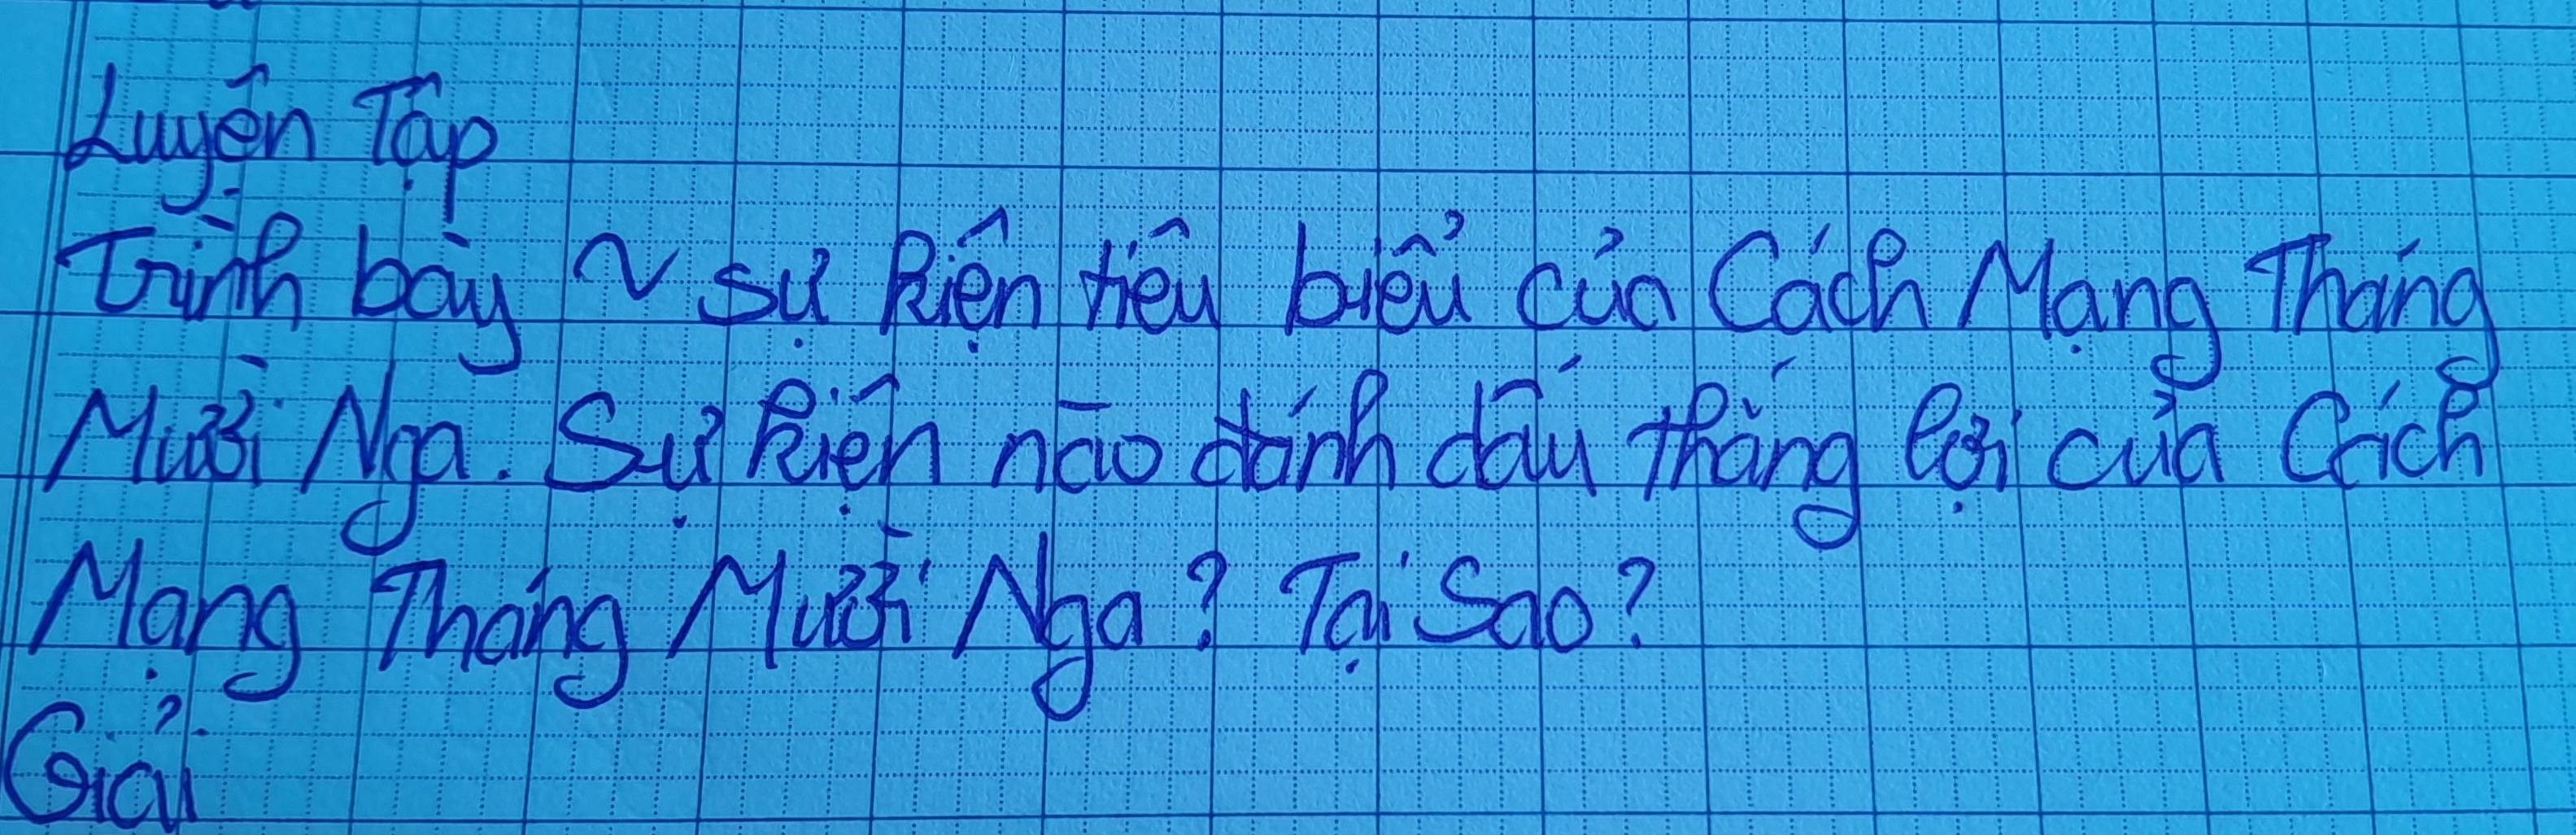 Luyện Tập
Trình bày ~ sự kiện tiêu biểu của Cách Mạng Tháng
Mười Nga. Sự kiện nào đánh dấu thắng lợi của Cách
Mạng Tháng Mười Nga? Tại Sao?
Giải